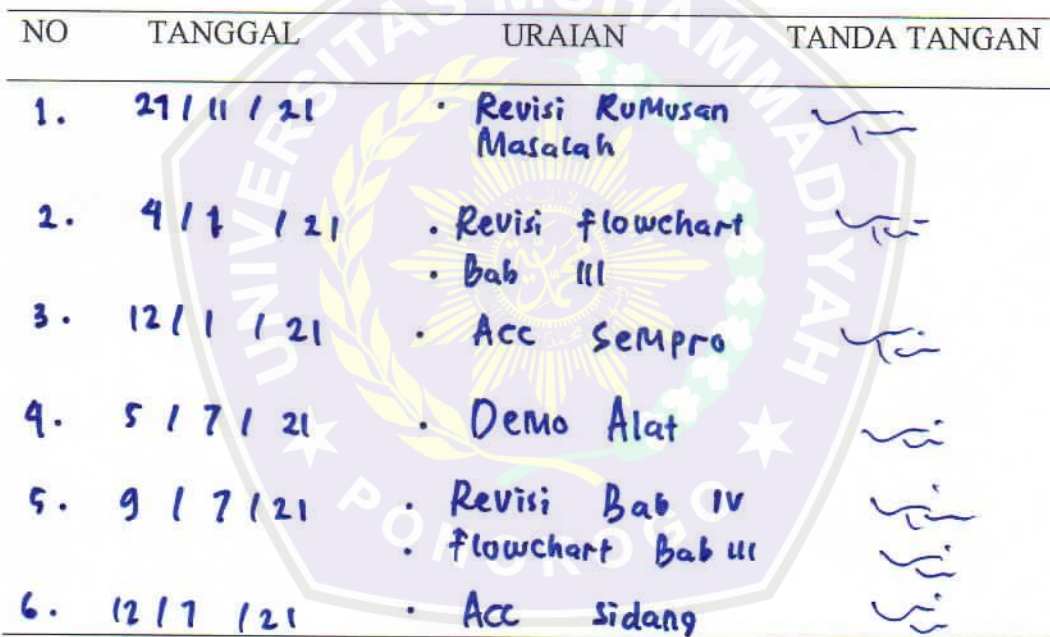 NO TANGGAL URAIAN TANDA TANGAN
1. 27 / 11 / 21 · Revisi Rumusan
Masalah
2. 4 / 1 / 21 · Revisi flowchart
· Bab III
3. 12 / 1 / 21 · Acc Sempro
4. 5 / 7 / 21 · Demo Alat
5. 9 / 7 / 21 · Revisi Bab IV
· flowchart Bab III
6. 12 / 7 / 21 · Acc sidang
UNIVERSITAS MUHAMMADIYAH
PONOROGO